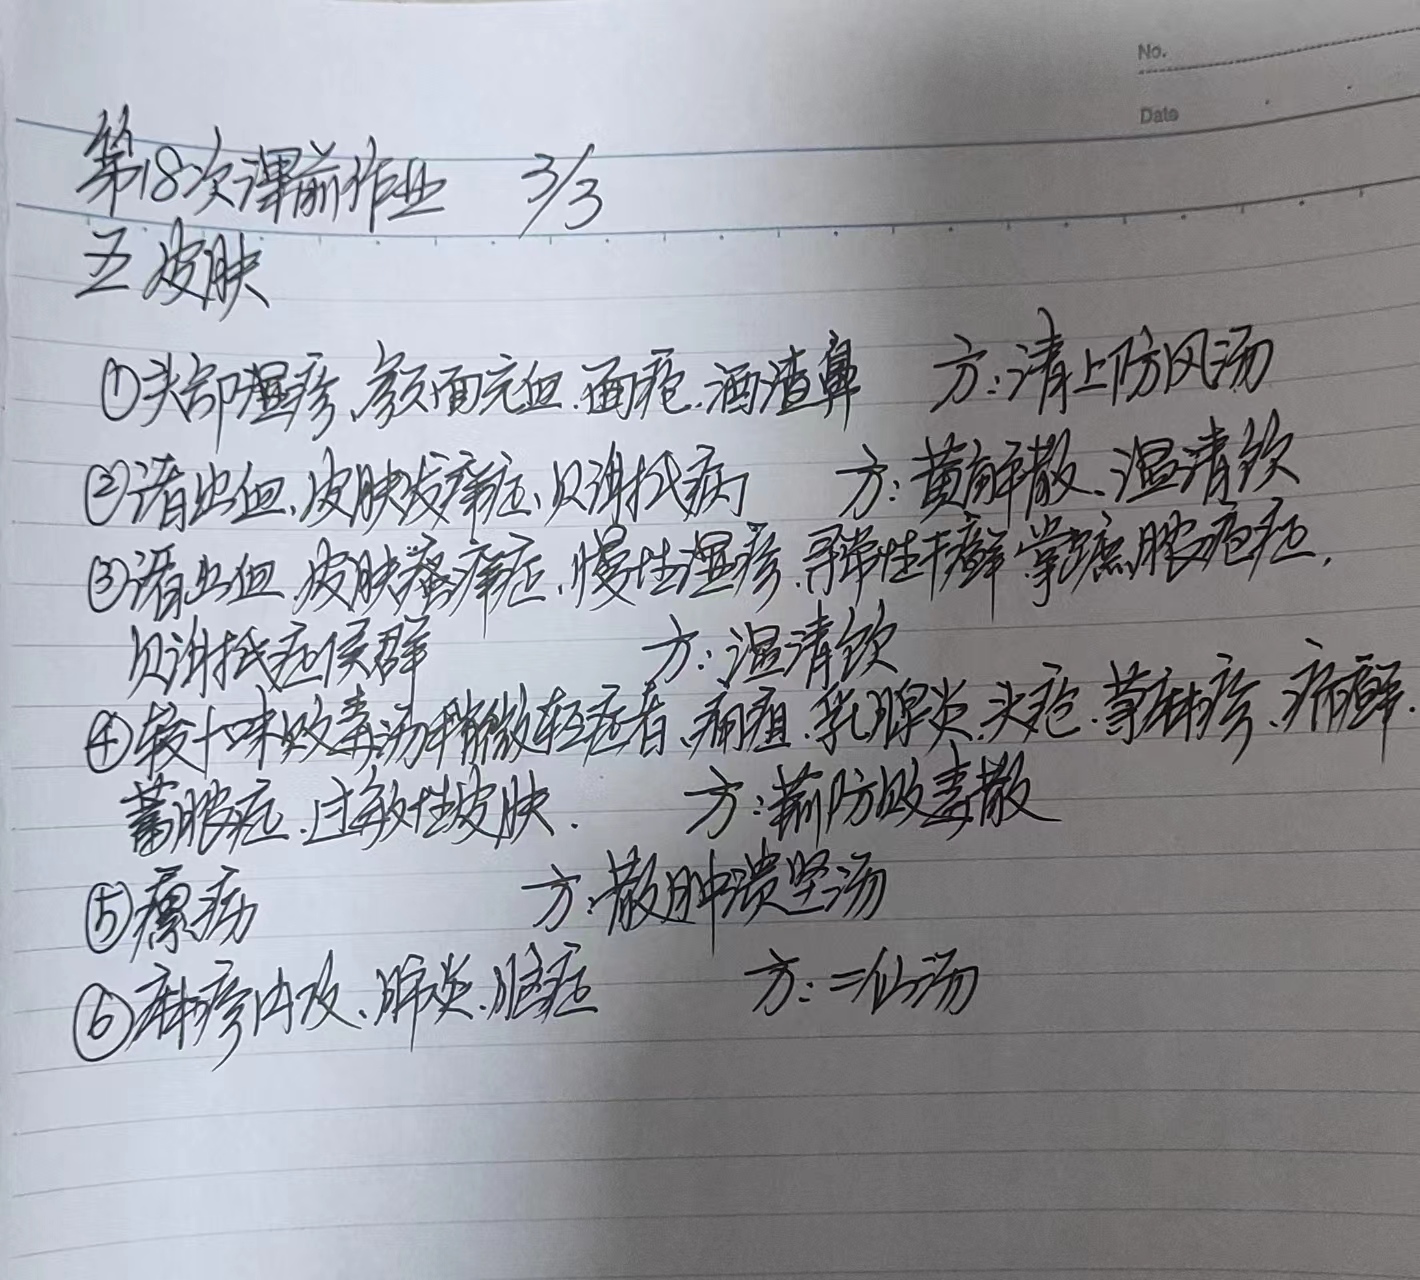 No.
Date
第18次课前作业 3/3
五 皮肤
①头部湿疹、颜面充血、面疱、酒渣鼻 方:清上防风汤
②诸出血、皮肤发痒症、贝谢抵病 方:黄解散、温清饮
③诸出血、皮肤瘙痒症、慢性湿疹、寻常性干癣、掌蹠脓疱症、
贝谢抵症候群 方:温清饮
④较十味败毒汤稍微轻症者、痈疽、乳腺炎、头疮、荨麻疹、疥癣、
蓄脓症、过敏性皮肤. 方:荊防败毒散
⑤瘰疬 方:散肿溃坚汤
⑥麻疹内攻、肺炎、脑症 方:二仙汤